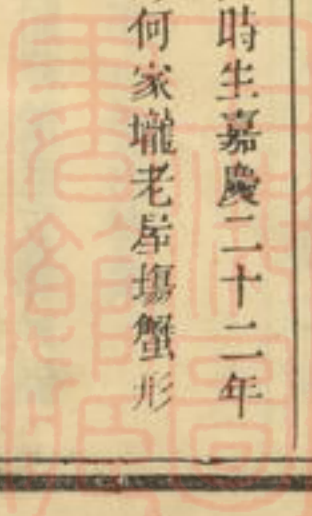 時生嘉慶二十二年
何家壠老屋塲蟹形